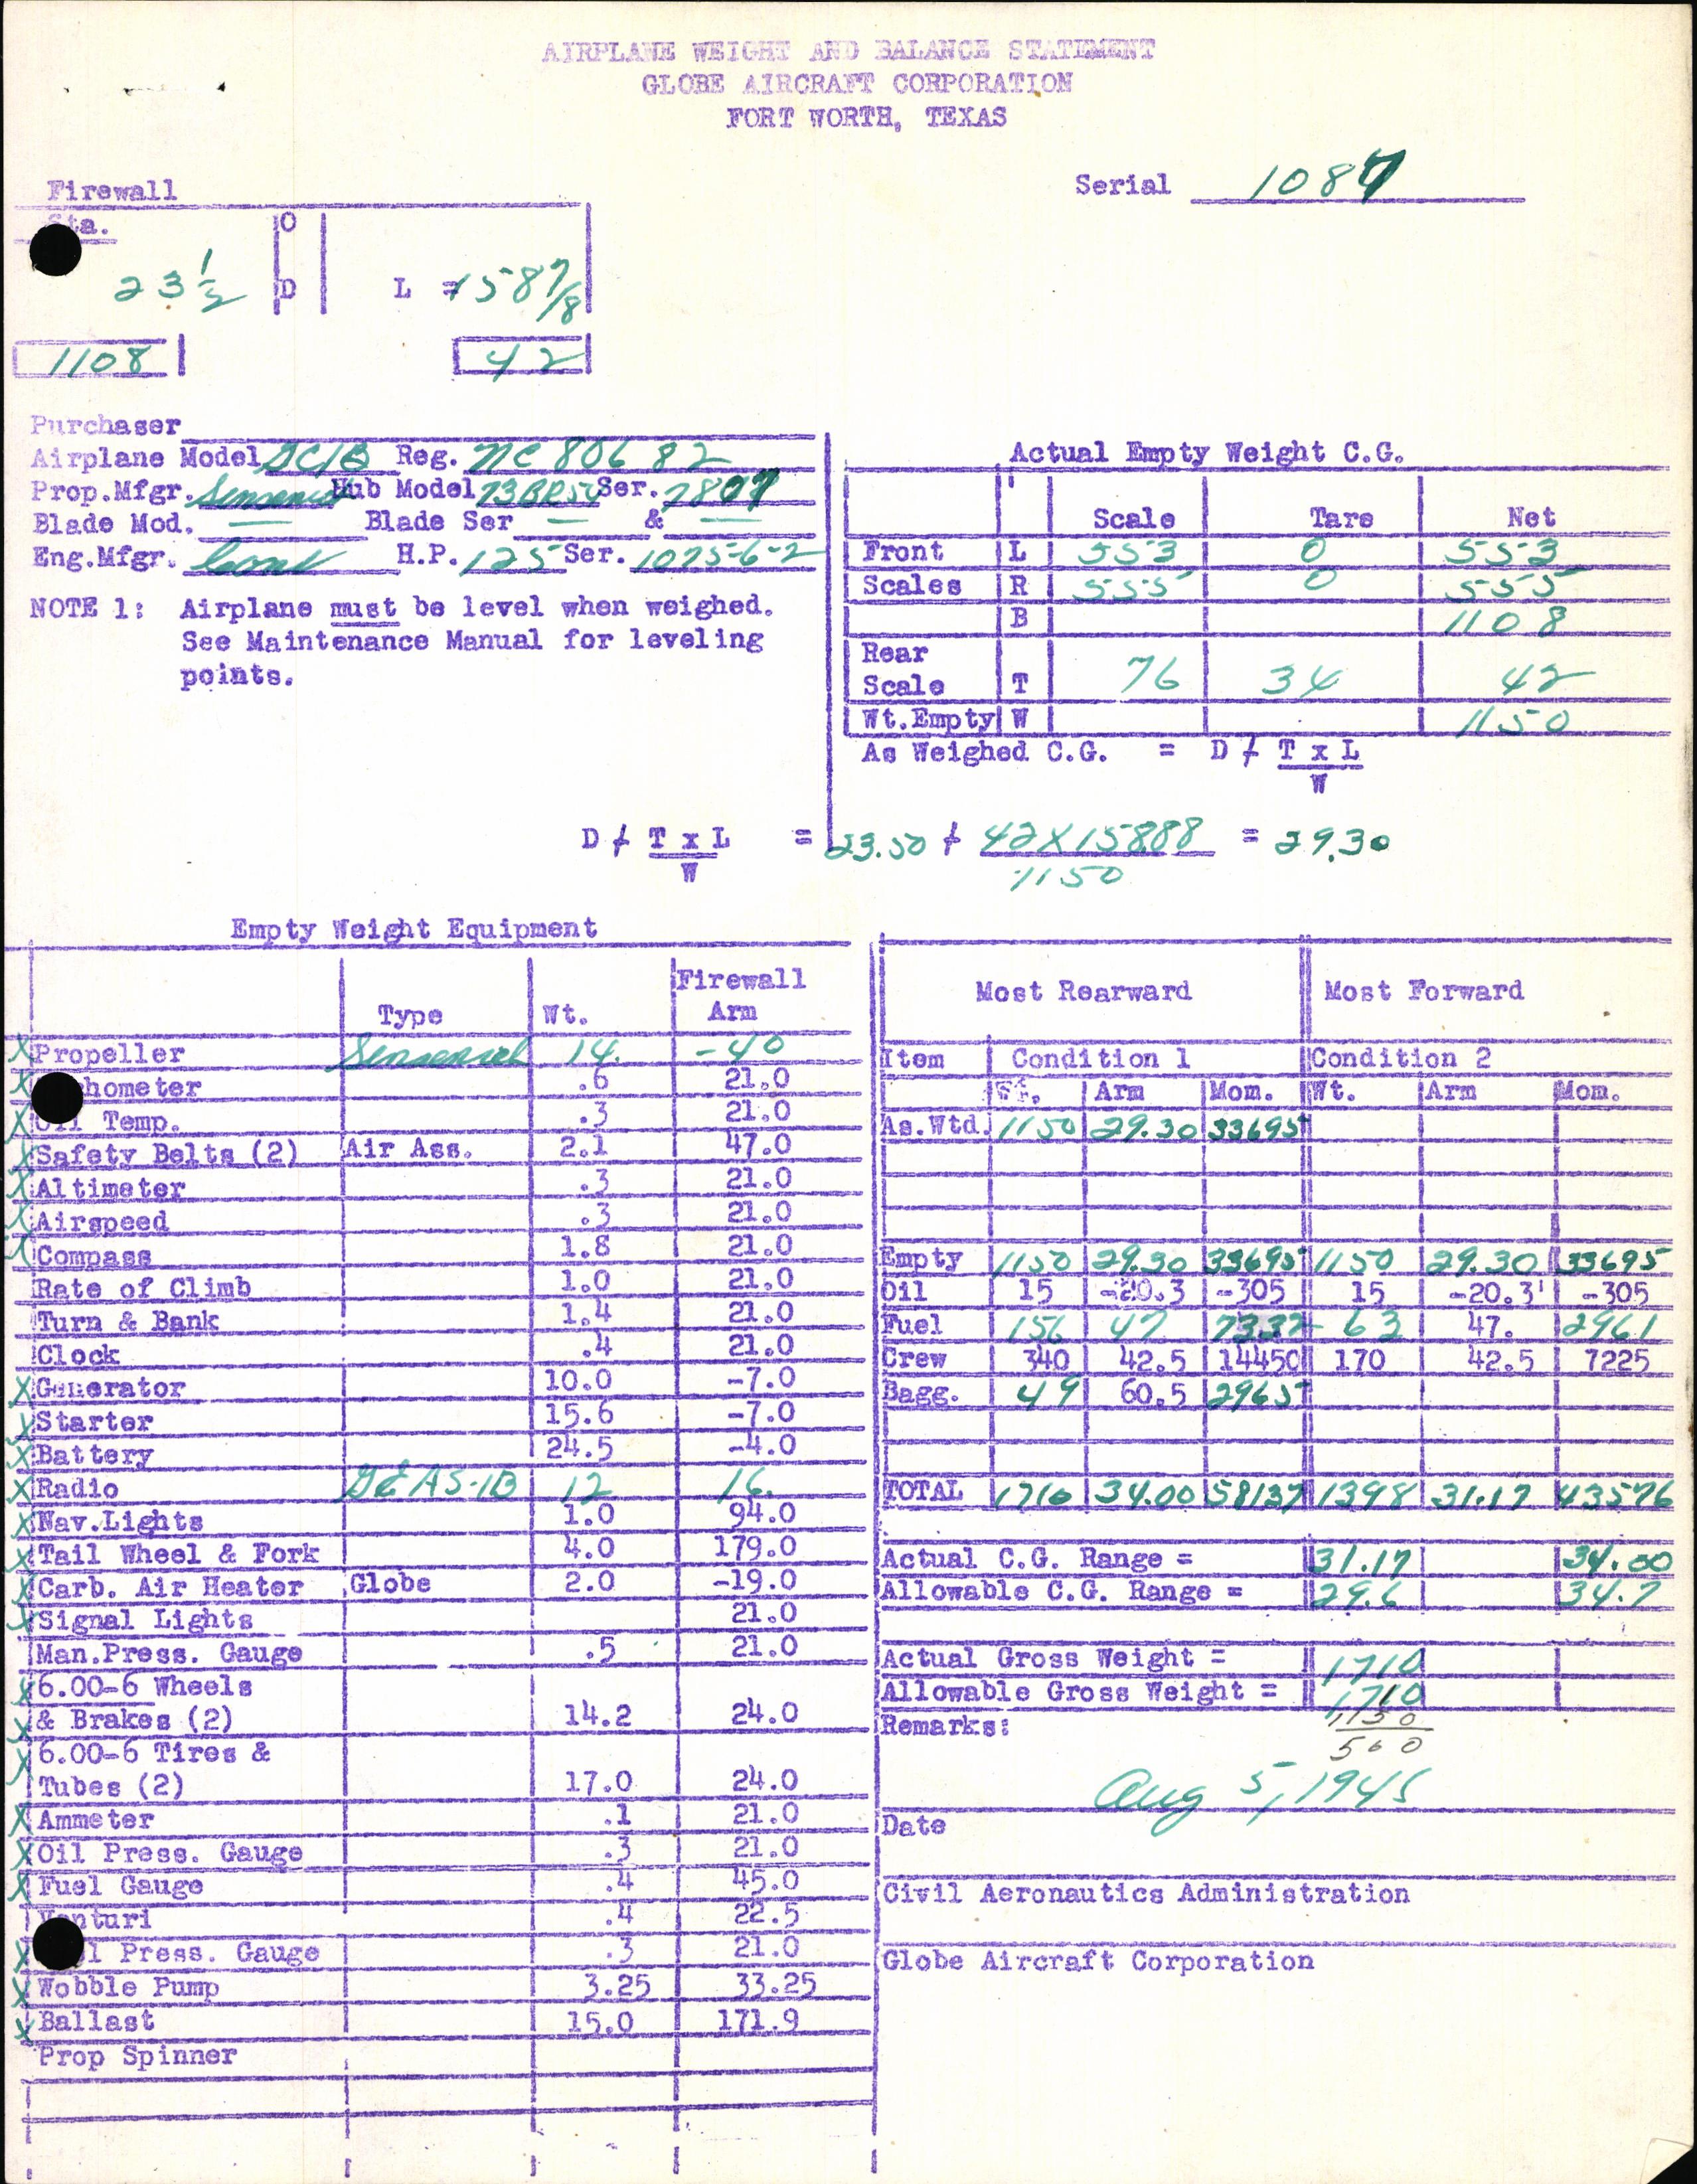 AIRPLANE WEIGHT AND BALANCE STATEMENT
GLOBE AIRCRAFT CORPORATION
FORT WORTH, TEXAS
Serial 1087
Firewall
Sta.
O
23 1/2 D L = 158 7/8
1108 42
Purchaser
Airplane Model GC1B Reg. NC 80682
Prop.Mfgr. Sensenich Hub Model 73BR50 Ser. 7807
Blade Mod. — Blade Ser — & —
Eng.Mfgr. Cont H.P. 125 Ser. 1075-6-2
NOTE 1: Airplane must be level when weighed.
See Maintenance Manual for leveling
points.
Actual Empty Weight C.G.
Scale Tare Net
Front L 553 0 553
Scales R 555 0 555
B 1108
Rear
Scale T 76 34 42
Wt.Empty W 1150
As Weighed C.G. = D + T x L
W
D + T x L = 23.50 + 42 X 158.88 = 29.30
W 1150
Empty Weight Equipment
Type Wt. Firewall Arm
X Propeller Sensenich 14. -40
X chometer .6 21.0
X Oil Temp. .3 21.0
X Safety Belts (2) Air Ass. 2.1 47.0
X Altimeter .3 21.0
X Airspeed .3 21.0
X Compass 1.8 21.0
Rate of Climb 1.0 21.0
Turn & Bank 1.4 21.0
Clock .4 21.0
X Generator 10.0 -7.0
X Starter 15.6 -7.0
X Battery 24.5 -4.0
X Radio GE AS-1B 12 16.
X Nav.Lights 1.0 94.0
X Tail Wheel & Fork 4.0 179.0
X Carb. Air Heater Globe 2.0 -19.0
X Signal Lights 21.0
Man.Press. Gauge .5 21.0
X 6.00-6 Wheels
X & Brakes (2) 14.2 24.0
X 6.00-6 Tires &
Tubes (2) 17.0 24.0
X Ammeter .1 21.0
X Oil Press. Gauge .3 21.0
X Fuel Gauge .4 45.0
Venturi .4 22.5
X l Press. Gauge .3 21.0
X Wobble Pump 3.25 33.25
X Ballast 15.0 171.9
Prop Spinner
Most Rearward Most Forward
Item Condition 1 Condition 2
Wt. Arm Mom. Wt. Arm Mom.
As.Wtd. 1150 29.30 33695
Empty 1150 29.30 33695 1150 29.30 33695
Oil 15 -20.3 -305 15 -20.3 -305
Fuel 156 47 7332 63 47. 2961
Crew 340 42.5 14450 170 42.5 7225
Bagg. 49 60.5 2965
TOTAL 1710 34.00 58137 1398 31.17 43576
Actual C.G. Range = 31.17 34.00
Allowable C.G. Range = 29.6 34.7
Actual Gross Weight = 1710
Allowable Gross Weight = 1710
Remarks: 1150
560
Aug 5, 1945
Date
Civil Aeronautics Administration
Globe Aircraft Corporation